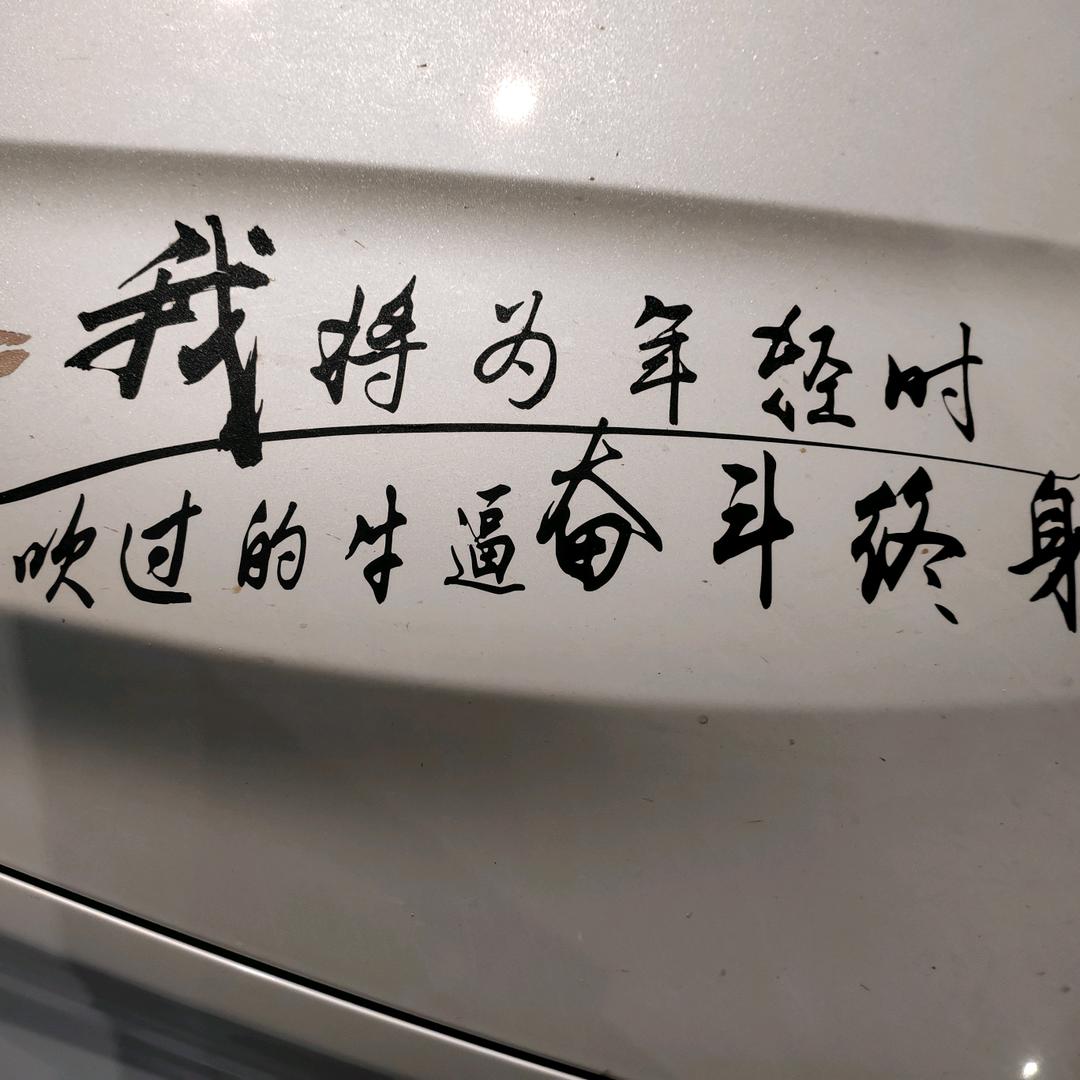 我将为年轻时
吹过的牛逼奋斗终身